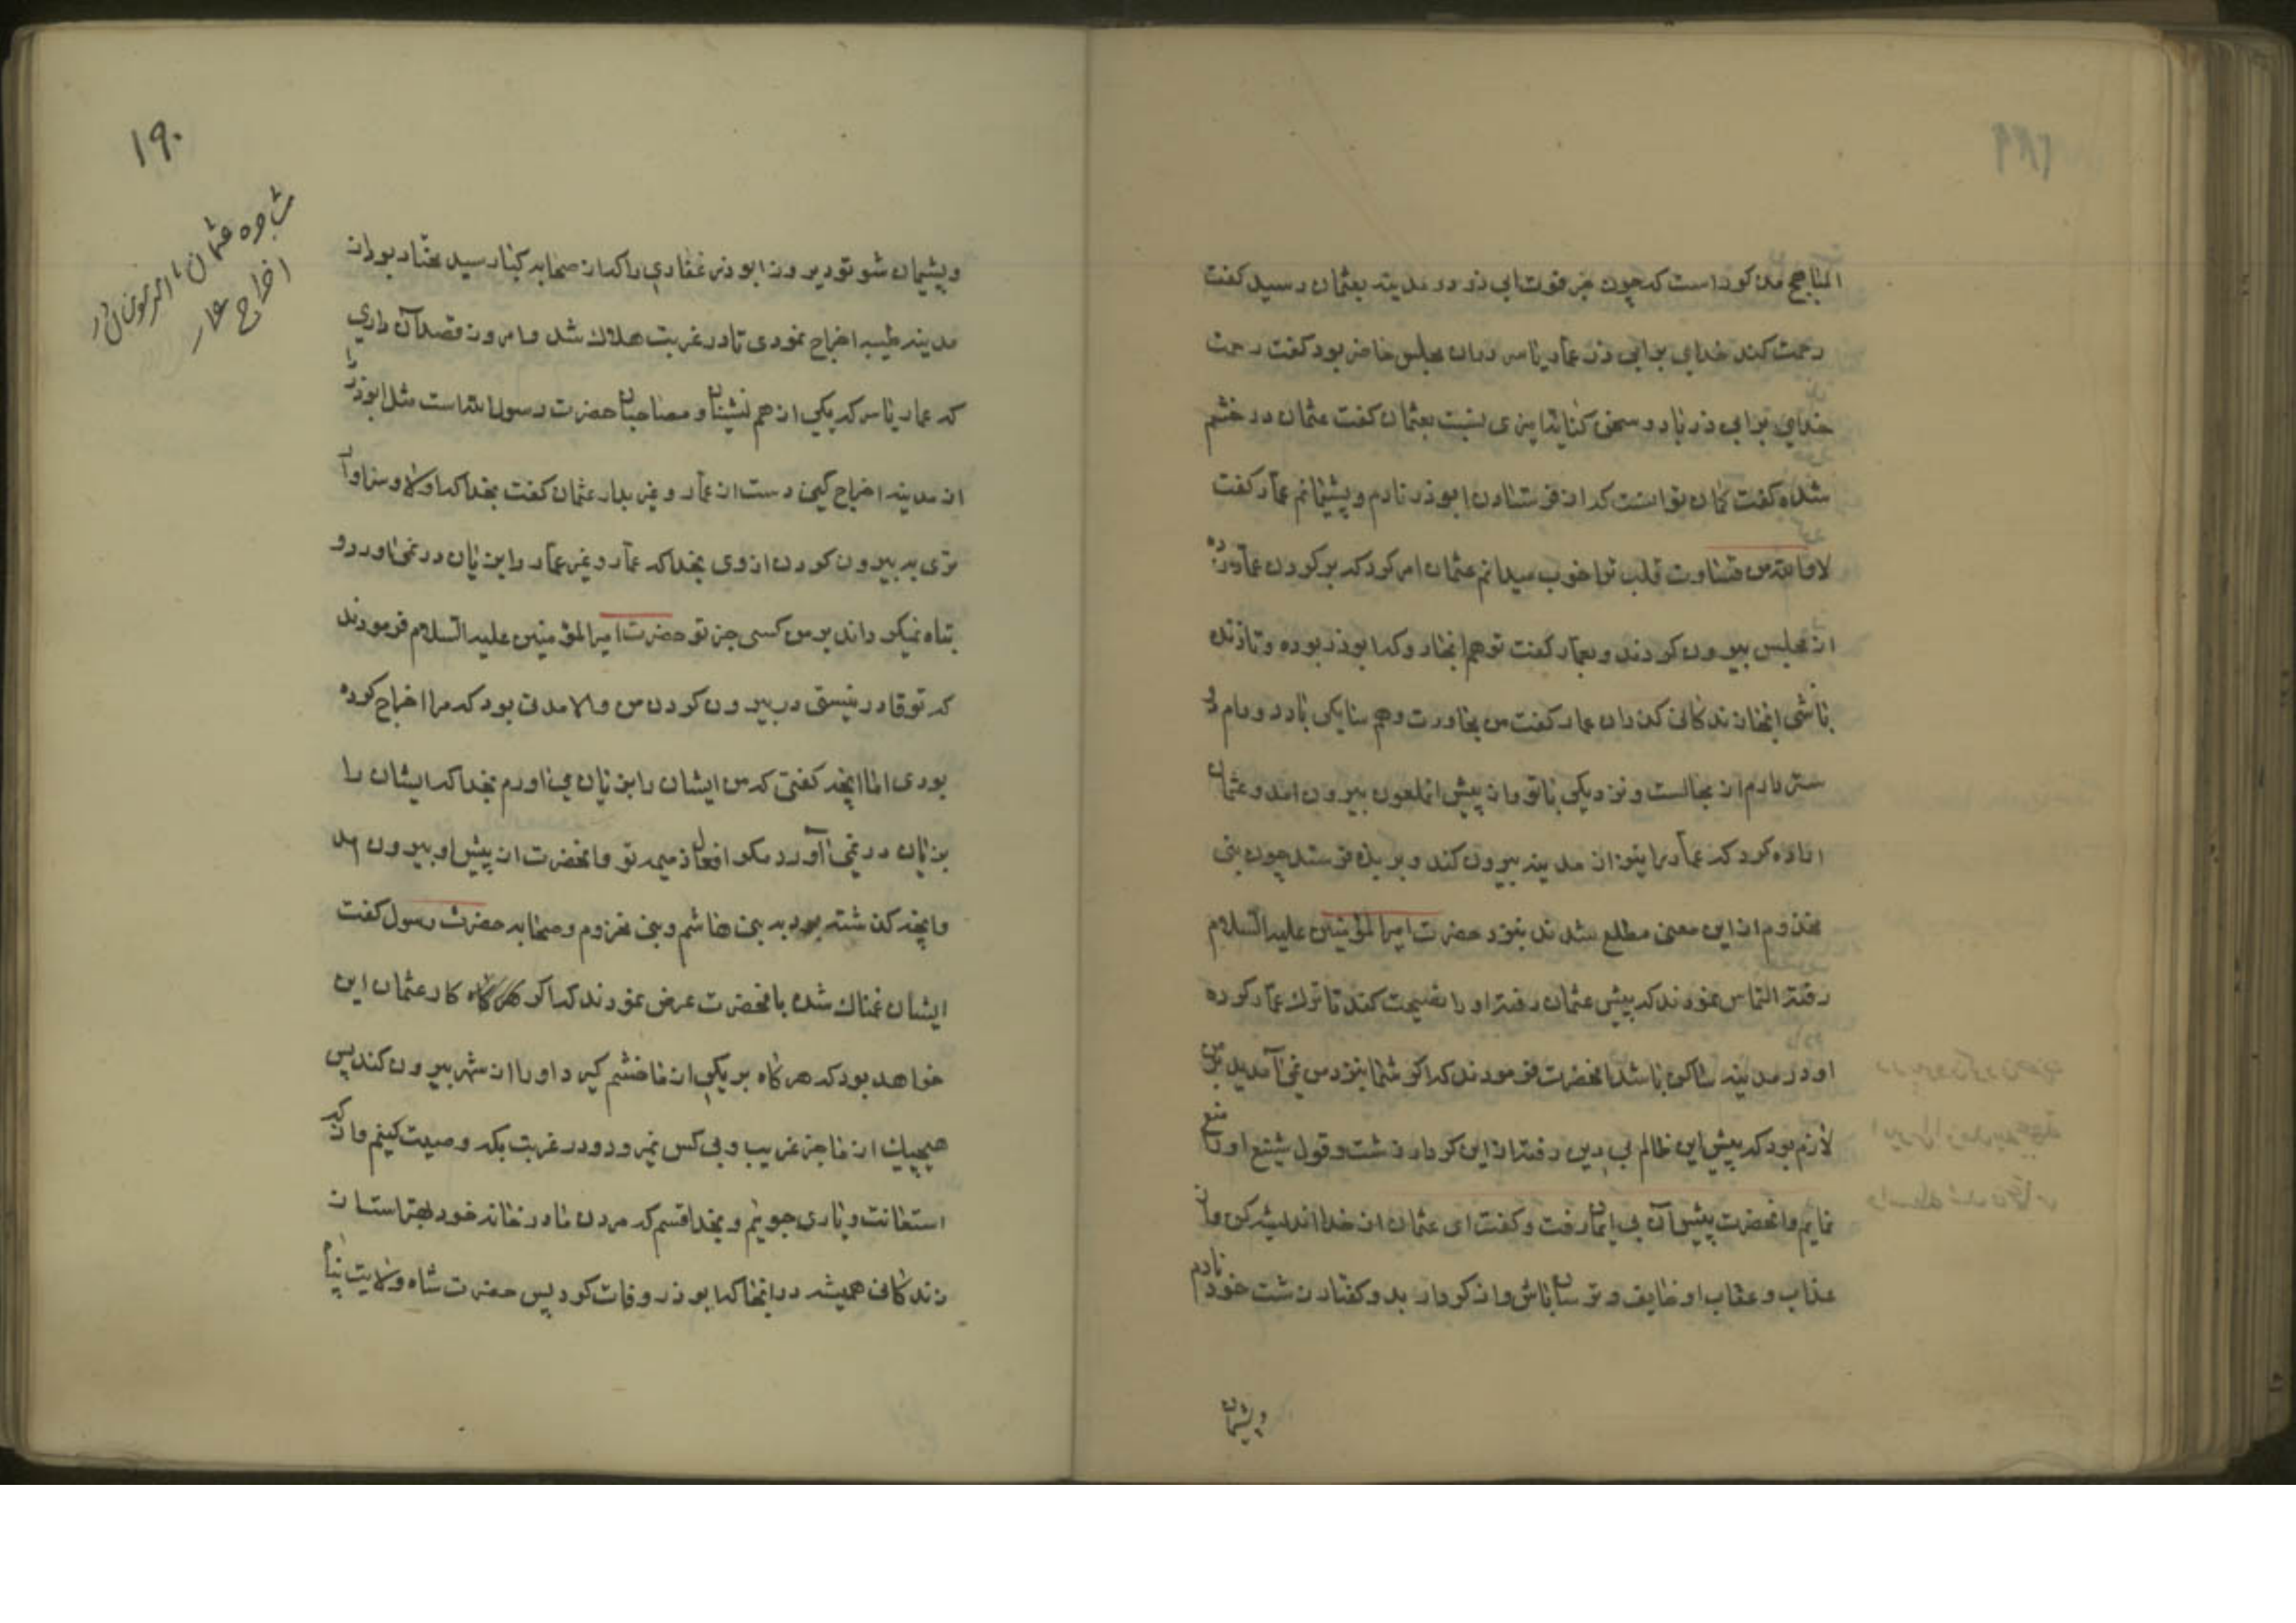 المناهج مذکور است که چون خبر فوت ابی ذر در مدینه بعثمان رسید کفت
رحمت کند خدای بر ابی ذر عمار یاسر دران مجلس حاضر بود کفت رحمت
خدای بر ابی ذر باد و سخن کنایه امیزی نسبت بعثمان کفت عثمان در خشم
شده کفت کمان تو انست که از فرستادن ابوذر نادم و پشیمانم عمار کفت
لا والله من قساوت قلب تو را خوب میدانم عثمان امر کرد که بر کردن عمار زده
از مجلس بیرون کردند و بعمار کفت تو هم انجا رو که ابوذر بوده و تا زنده
باشی انجا زندکانی کذران عمار کفت من مجاورت و همسایکی با دد و دام را
ستر دارم از مجالست و نزدیکی با تو و از پیش انملعون بیرون امد و عثمان
اراده کرد که عمار را نیز از مدینه بیرون کند و بربذه فرستد چون بنی
مخزوم از این معنی مطلع شدند بنزد حضرت امیرالمؤمنین علیه السلام
رفته التماس نمودند که پیش عثمان رفته او را نصیحت کند تا ترک عمار کرده
او در مدینه ساکن باشد انحضرت فرمودند که اکر شما بنزد من نمی آمدید بر من
لازم بود که پیش این ظالم بی دین رفته از این کردار زشت و قول شنیع او را منع
نمایم و انحضرت پیش آن بی ایمان رفت و کفت ای عثمان از خدا اندیشه کن و از
عذاب و عقاب او خایف و ترسان باش و از کردار بد و کفتار زشت خود نادم
و پشیمان
۱۹۰
مشاجره عثمان با امیرالمؤمنین در
اخراج عمار
و پشیمان شو تو دیروز ابوذر غفاری را که از صحابه کبار سید مختار بود از
مدینه طیبه اخراج نمودی تا در غربت هلاک شد و امروز قصد آن داری
که عمار یاسر که یکی از هم نشینان و مصاحبان حضرت رسول الله است مثل ابوذر را
از مدینه اخراج کنی دست از عمار و غیر بدار عثمان کفت بخدا که اولا و سزاوار
تری به بیرون کردن از وی بخدا که عمار و غیر عمار را بر زبان در نمی اورد و
تباه نمیکرداند بر من کسی جز تو حضرت امیرالمؤمنین علیه السلام فرمودند
که تو قادر نیستی در بیرون کردن من والا مدتی بود که مرا اخراج کرده
بودی اما انچه کفتی که من ایشان را بر زبان می اورم بخدا که ایشان را
بر زبان در نمی آورد مکر افعال ذمیمه تو و انحضرت از پیش او بیرون امد
و انچه کذشته بود به بنی هاشم و بنی مخزوم و صحابه حضرت رسول کفت
ایشان غمناک شده بانحضرت عرض نمودند که اکر کار عثمان این
خواهد بود که هر کاه بر یکی از ما خشم کیرد او را از شهر بیرون کند پس
هیچیک از ما جز غریب و بی کس نمیرد و در غربت بکه وصیت کنیم و از که
استعانت و یاری جوئیم و بخدا قسم که مردن ما در خانه خود بهتر است از
زندکانی همیشه در انجا که ابوذر وفات کرد پس حضرت شاه ولایت پناه